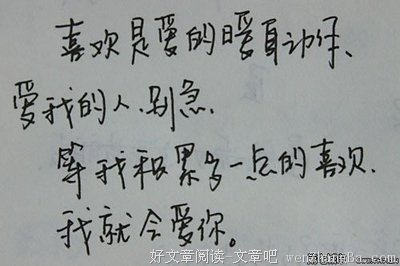 喜欢是爱的暖身动作、
爱我的人.别急.
等我积累多一点的喜欢.
我就会爱你。
好文章阅读-文章吧 wenzhangBa.com